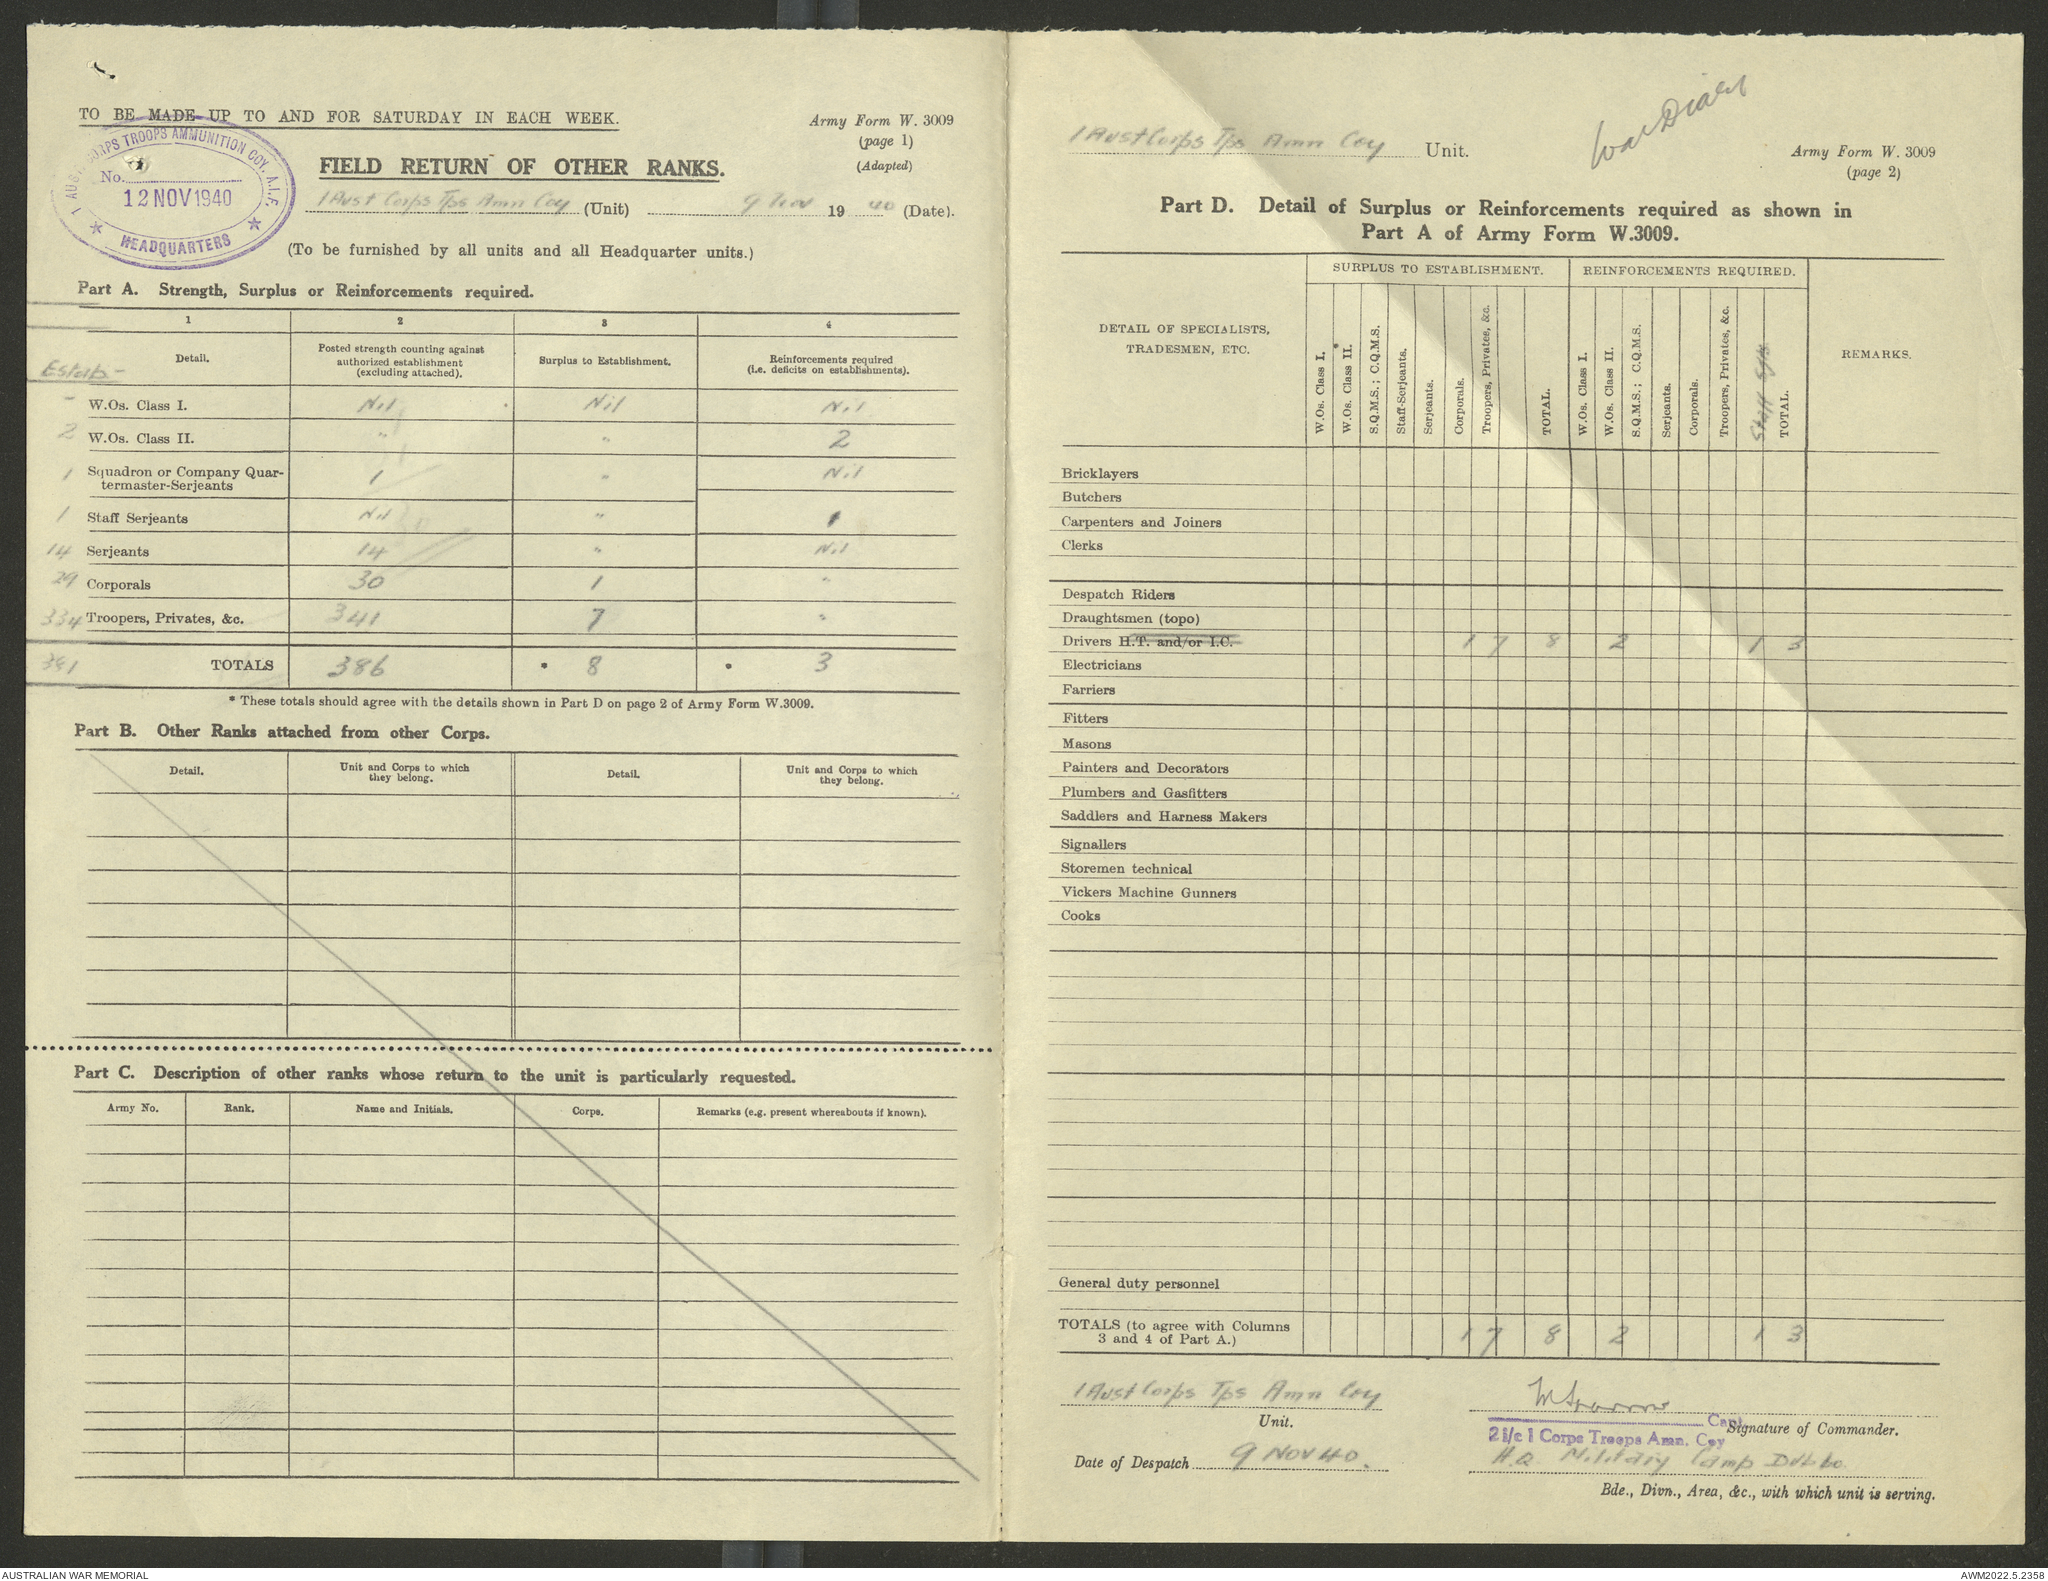 TO BE MADE UP TO AND FOR SATURDAY IN EACH WEEK.
Army Form W. 3009
(page 1)
(Adapted)
1 AUST CORPS TROOPS AMMUNITION COY. A.I.F.
No.
12 NOV 1940
HEADQUARTERS
FIELD RETURN OF OTHER RANKS.
1 Aust Corps Tps Amn Coy (Unit) 9 Nov 19 40 (Date).
(To be furnished by all units and all Headquarter units.)
Part A. Strength, Surplus or Reinforcements required.
1 2 3 4
Estab- Detail. Posted strength counting against authorized establishment (excluding attached). Surplus to Establishment. Reinforcements required (i.e. deficits on establishments).
- W.Os. Class I. Nil Nil Nil
2 W.Os. Class II. " " 2
1 Squadron or Company Quartermaster-Serjeants 1 " Nil
1 Staff Serjeants Nil " 1
14 Serjeants 14 " Nil
29 Corporals 30 1 "
334 Troopers, Privates, &c. 341 7 "
381 TOTALS 386 * 8 * 3
* These totals should agree with the details shown in Part D on page 2 of Army Form W.3009.
Part B. Other Ranks attached from other Corps.
Detail. Unit and Corps to which they belong. Detail. Unit and Corps to which they belong.
Part C. Description of other ranks whose return to the unit is particularly requested.
Army No. Rank. Name and Initials. Corps. Remarks (e.g. present whereabouts if known).
1 Aust Corps Tps Amn Coy Unit.
War Diary
Army Form W. 3009
(page 2)
Part D. Detail of Surplus or Reinforcements required as shown in
Part A of Army Form W.3009.
DETAIL OF SPECIALISTS, TRADESMEN, ETC.
SURPLUS TO ESTABLISHMENT.
REINFORCEMENTS REQUIRED.
REMARKS.
W.Os. Class I.
W.Os. Class II.
S.Q.M.S.; C.Q.M.S.
Staff-Serjeants.
Serjeants.
Corporals.
Troopers, Privates, &c.
TOTAL.
W.Os. Class I.
W.Os. Class II.
S.Q.M.S.; C.Q.M.S.
Serjeants.
Corporals.
Troopers, Privates, &c.
Staff Sjts.
TOTAL.
Bricklayers
Butchers
Carpenters and Joiners
Clerks
Despatch Riders
Draughtsmen (topo)
Drivers H.T. and/or I.C. 1 7 8 2 1 3
Electricians
Farriers
Fitters
Masons
Painters and Decorators
Plumbers and Gasfitters
Saddlers and Harness Makers
Signallers
Storemen technical
Vickers Machine Gunners
Cooks
General duty personnel
TOTALS (to agree with Columns
3 and 4 of Part A.) 1 7 8 2 1 3
1 Aust Corps Tps Amn Coy
Unit.
Capt.
Signature of Commander.
2 i/c 1 Corps Troops Amn. Coy
Date of Despatch 9 NOV 40.
H.Q. Military Camp Dubbo
Bde., Divn., Area, &c., with which unit is serving.
AUSTRALIAN WAR MEMORIAL
AWM2022.5.2358